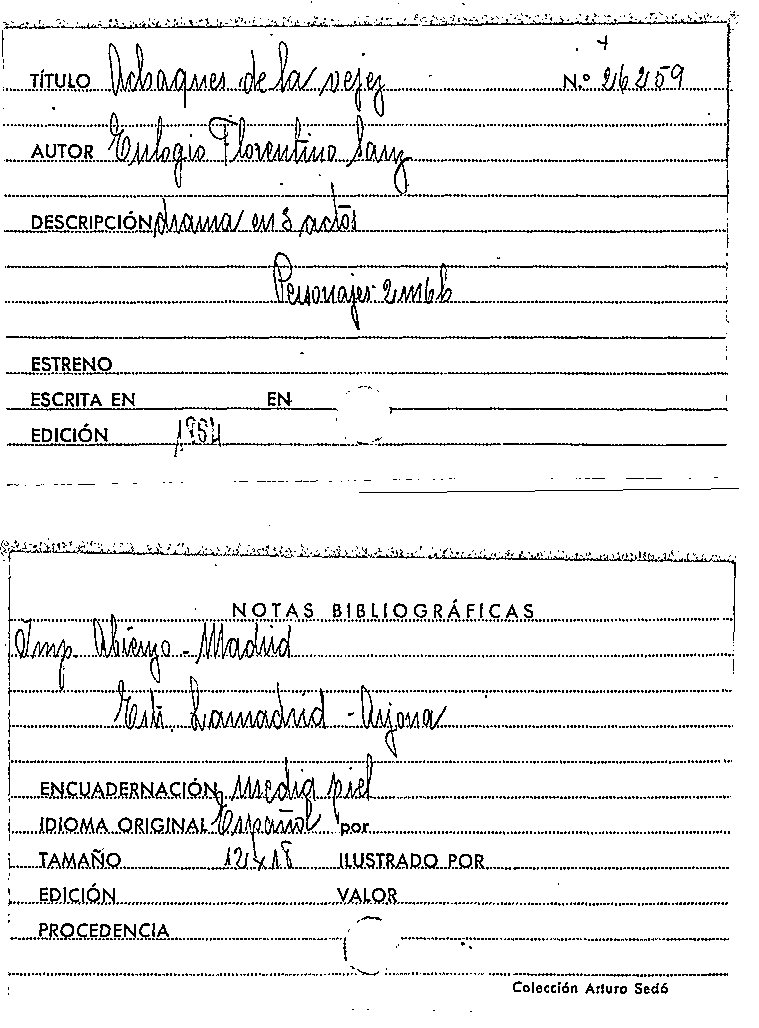 TÍTULO Achaques de la vejez N.º 26259
AUTOR Eulogio Florentino Sanz
DESCRIPCIÓN drama en 3 actos
Personajes 2m6h
ESTRENO
ESCRITA EN EN
EDICIÓN
NOTAS BIBLIOGRÁFICAS
Imp. Abienzo - Madrid
Estr. Lamadrid - Arjona
ENCUADERNACIÓN media piel
IDIOMA ORIGINAL Español por
TAMAÑO 12x18 ILUSTRADO POR
EDICIÓN VALOR
PROCEDENCIA
Colección Arturo Sedó